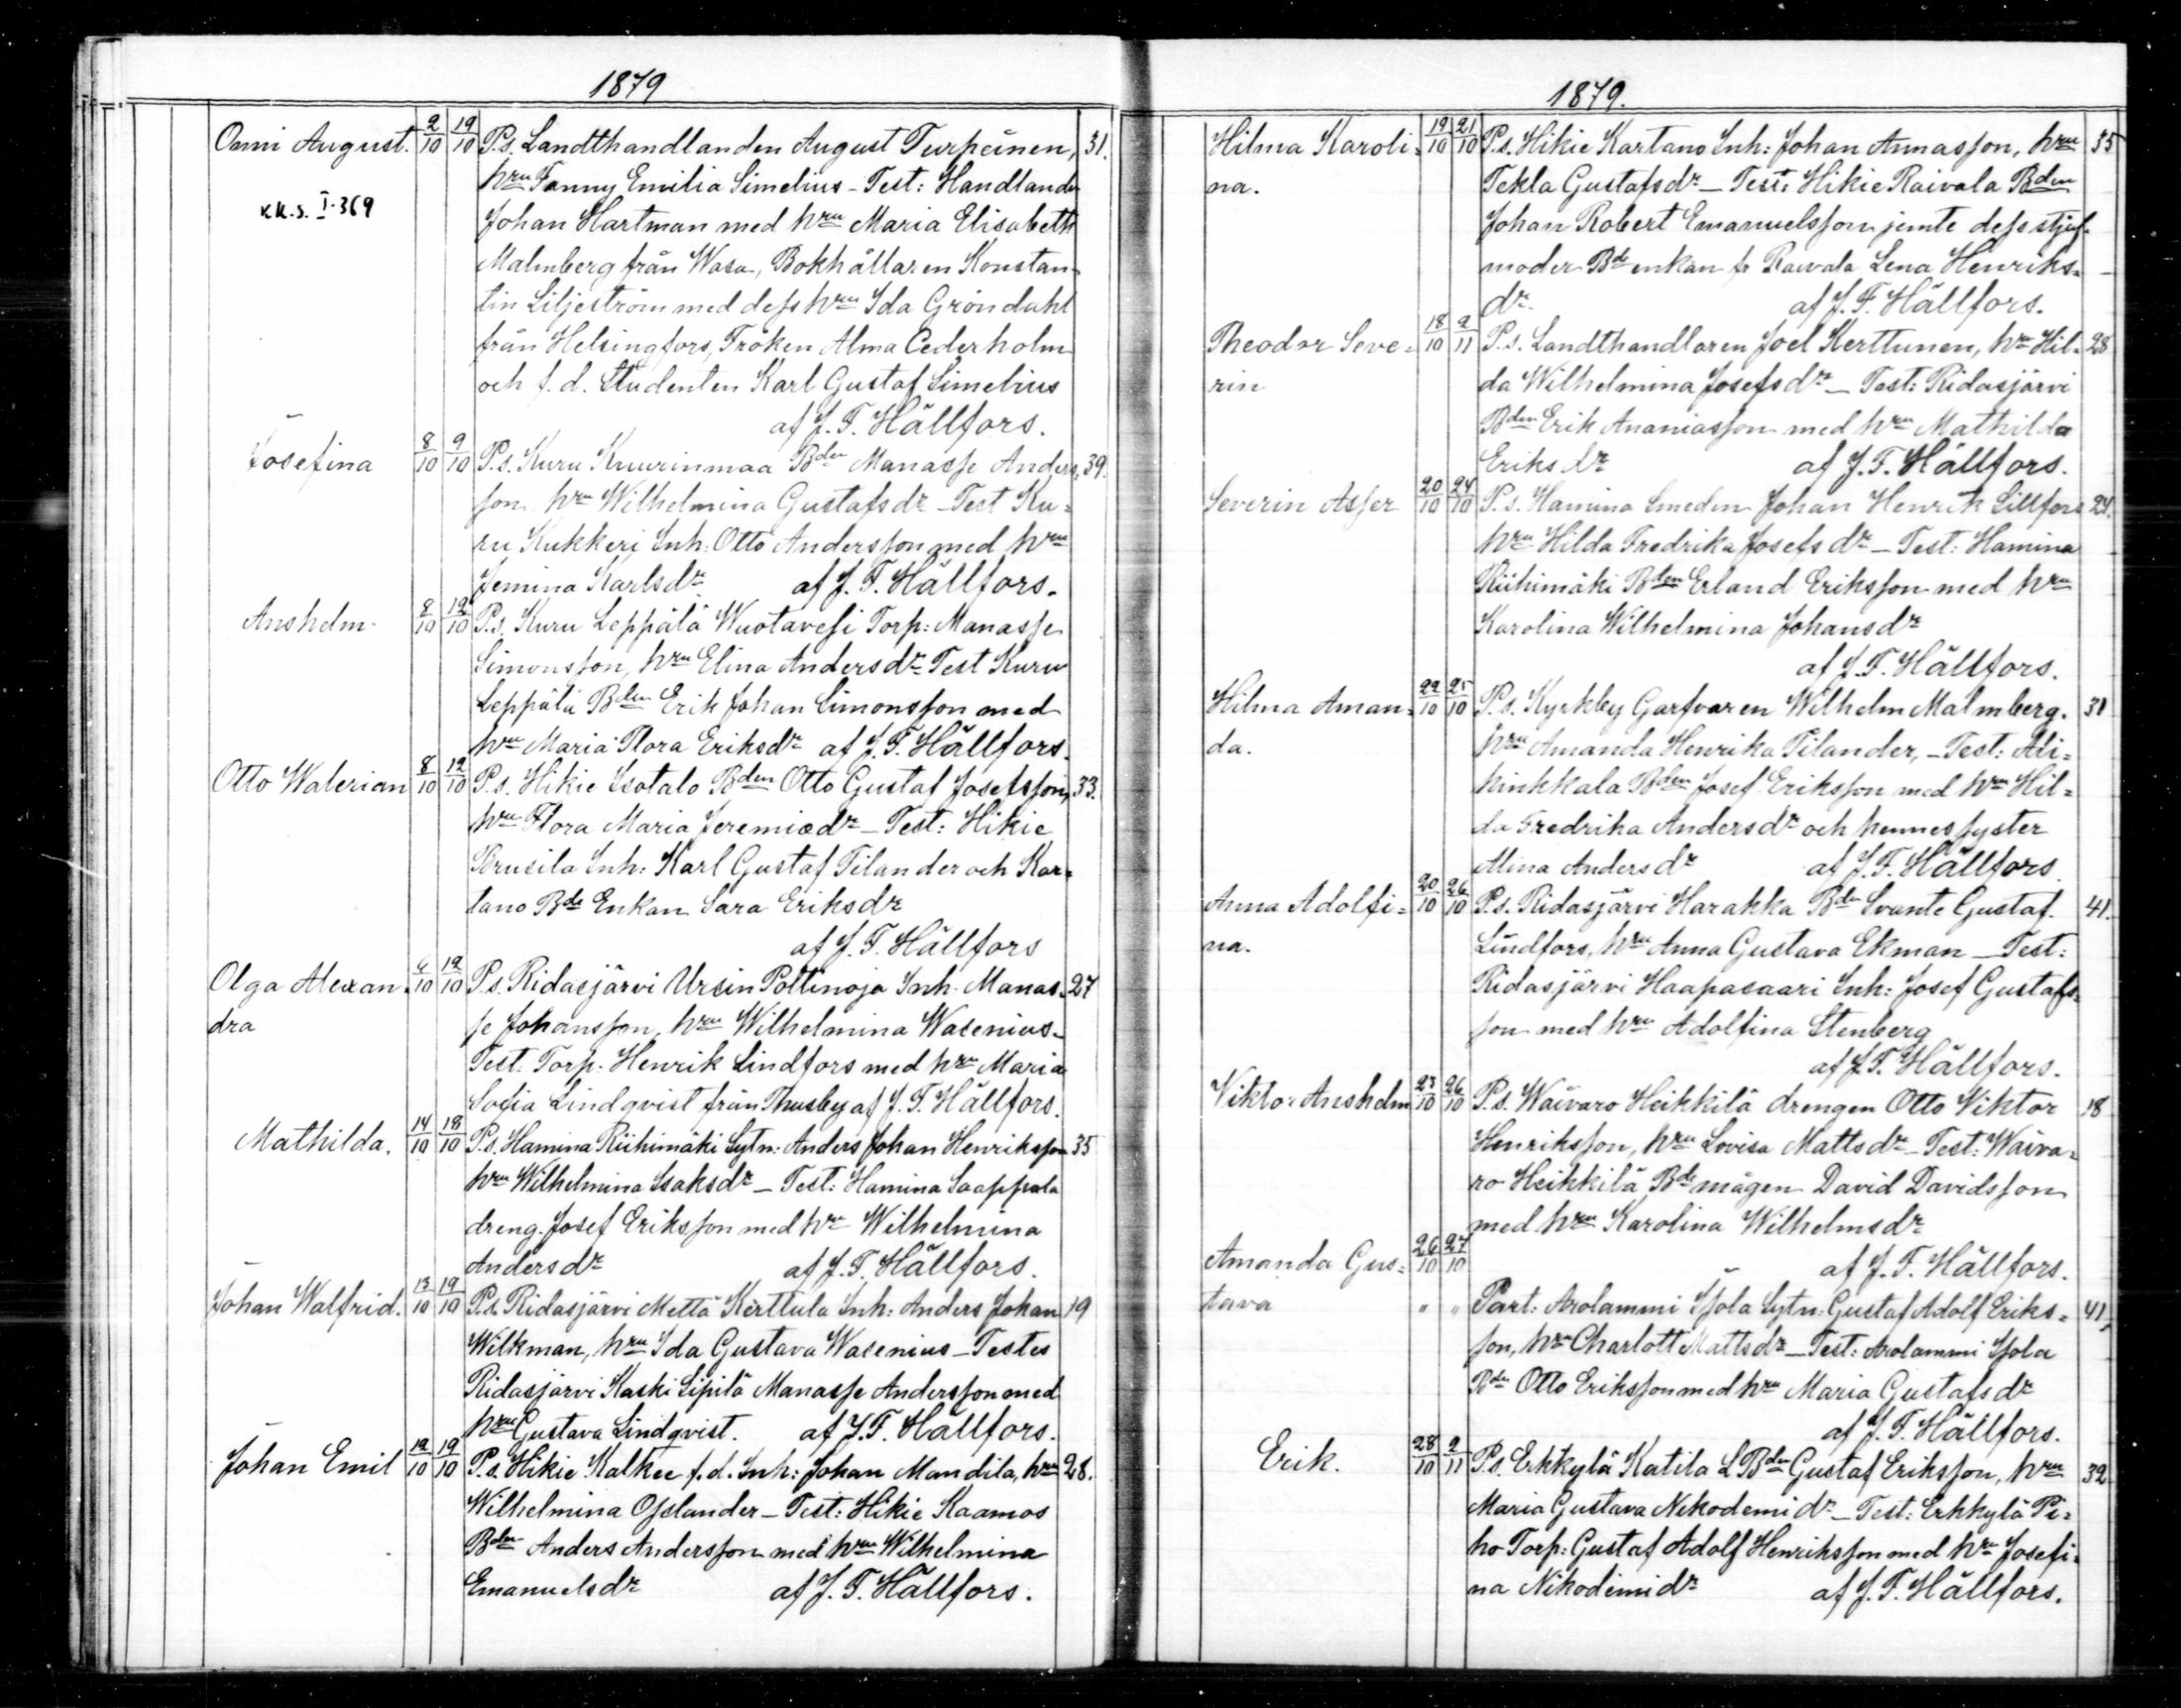 1879
Onni August. 2/10 19/10 P.s. Landthandlanden August Turpeinen, 31.
K.K.S. I.369 hru Fanny Emilia Simelius - Test: Handlanden
Johan Hartman med hru Maria Elisabeth
Malmberg från Wasa, Bokhållaren Konstan-
tin Liljeström med dess hru Ida Gröndahl
från Helsingfors, Fröken Alma Cederholm
och f. d. Studenten Karl Gustaf Simelius
af J. F. Hällfors.
Josefina 8/10 9/10 P.s. Kuru Kuurinmaa Bden Manasse Anders- 39.
son, hru Wilhelmina Gustafsdr - Test Ku-
ru Kukkeri Inh: Otto Andersson med hru
Jemina Karlsdr. af J. F. Hällfors.
Anshelm. 8/10 12/10 P.s. Kuru Leppälä Wuotavesi Torp: Manasse
Simonsson, hru Elina Andersdr Test Kuru
Leppälä Bden Erik Johan Simonsson med
hru Maria Flora Eriksdr af J. F. Hällfors.
Otto Walerian 8/10 12/10 P.s. Hikie Isotalo Bden Otto Gustaf Josefsson, 33.
hru Flora Maria Jeremiædr - Test: Hikie
Brusila Inh: Karl Gustaf Tilander och Kar-
tano Bde Enkan Sara Eriksdr
af J. F. Hällfors
Olga Alexan- 6/10 12/10 P.s. Ridasjärvi Ursin Poltinoja Inh. Manas- 27
dra se Johansson, hru Wilhelmina Wasenius-
Test: Torp. Henrik Lindfors med hru Maria
Sofia Lindqvist från Thusby af J. F. Hällfors.
Mathilda. 14/10 18/10 P.s. Hamina Riihimäki Sytn: Anders Johan Henriksson 35
hru Wilhelmina Isaksdr - Test: Hamina Saappala
dreng. Josef Eriksson med hru Wilhelmina
Andersdr af J. F. Hällfors.
Johan Walfrid. 13/10 19/10 P.s. Ridasjärvi Mettä Kerttula Inh: Anders Johan 19
Wilkman, hru Ida Gustava Wasenius - Testes
Ridasjärvi Kaski Sipilä Manasse Andersson med
hru Gustava Lindqvist. af J. F. Hällfors.
Johan Emil 12/10 19/10 P.s. Hikie Kalkee f.d. Inh: Johan Mandila, hru 28.
Wilhelmina Oselander - Test: Hikie Kaamos
Bden Anders Andersson med hru Wilhelmina
Emanuelsdr af J. F. Hällfors.
1879.
Hilma Karoli- 19/10 21/10 P.s. Hikie Kartano Inh: Johan Annasson, hru 35
na. Tekla Gustafsdr - Test: Hikie Raivala Bden
Johan Robert Emanuelsson jemte dess stjuf-
moder Bde enkan fr Raivala Lena Henriks-
dr. af J. F. Hällfors.
Theodor Seve- 18/10 2/11 P.s. Landthandlaren Joel Kerttunen, hru Hil- 28
rin da Wilhelmina Josefsdr - Test: Ridasjärvi
Bden Erik Ananiasson med hru Mathilda
Eriksdr af J. F. Hällfors.
Severin Asser 20/10 24/10 P.s. Hamina Smeden Johan Henrik Sillfors 24.
hru Hilda Fredrika Josefsdr - Test: Hamina
Riihimäki Bden Erland Eriksson med hru
Karolina Wilhelmina Johansdr
af J. F. Hällfors.
Hilma Aman- 22/10 25/10 P.s. Kyrkby Garfvaren Wilhelm Malmberg. 31
da. hru Amanda Henrika Tilander, - Test: Ali-
hinkkala Bden Josef Eriksson med hru Hil-
da Fredrika Andersdr och hennes syster
Alina Andersdr af J. F. Hällfors.
Anna Adolfi- 20/10 26/10 P.s. Ridasjärvi Harakka Bden Svante Gustaf. 41.
na. Lindfors, hru Anna Gustava Ekman - Test:
Ridasjärvi Haapasaari Inh: Josef Gustafs-
son med hru Adolfina Stenberg
af J. F. Hällfors.
Viktor Anshelm 23/10 26/10 P.s. Waivaro Heikkilä drengen Otto Viktor 18
Henriksson, hru Lovisa Mattsdr - Test: Waiva-
ro Heikkilä Bde mågen David Davidsson
med hru Karolina Wilhelmsdr
Amanda Gus- 26/10 27/10 af J. F. Hällfors.
tava " " Part: Arolammi Isola Sytn: Gustaf Adolf Eriks- 41.
son, hru Charlott Mattsdr - Test: Arolammi Isola
Bden Otto Eriksson med hru Maria Gustafsdr
af J. F. Hällfors.
Erik. 28/10 2/11 P.s. Erkkylä Katila L Bden Gustaf Eriksson, hru 32
Maria Gustava Nikodemidr - Test: Erkkylä Pi-
ho Torp: Gustaf Adolf Henriksson med hru Josefi-
na Nikodemidr af J. F. Hällfors.